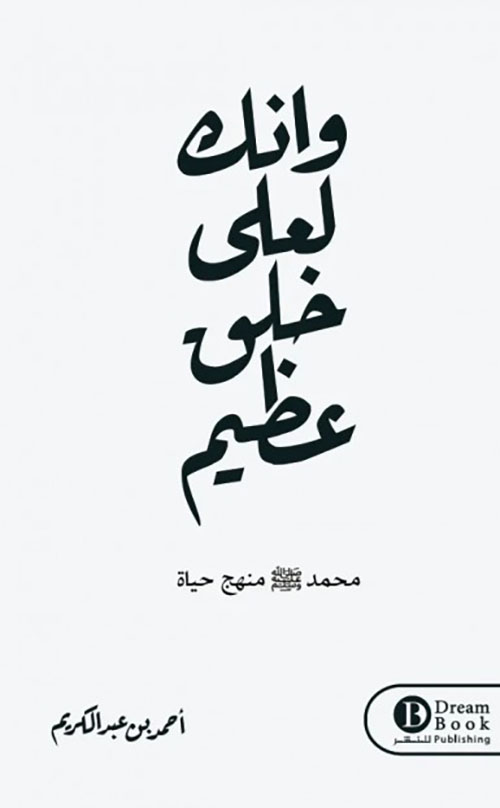 وانك
لعلى
خلق
عظيم
محمد ﷺ منهج حياة
أحمد بن عبد الكريم
B Dream
Book
للنشر Publishing